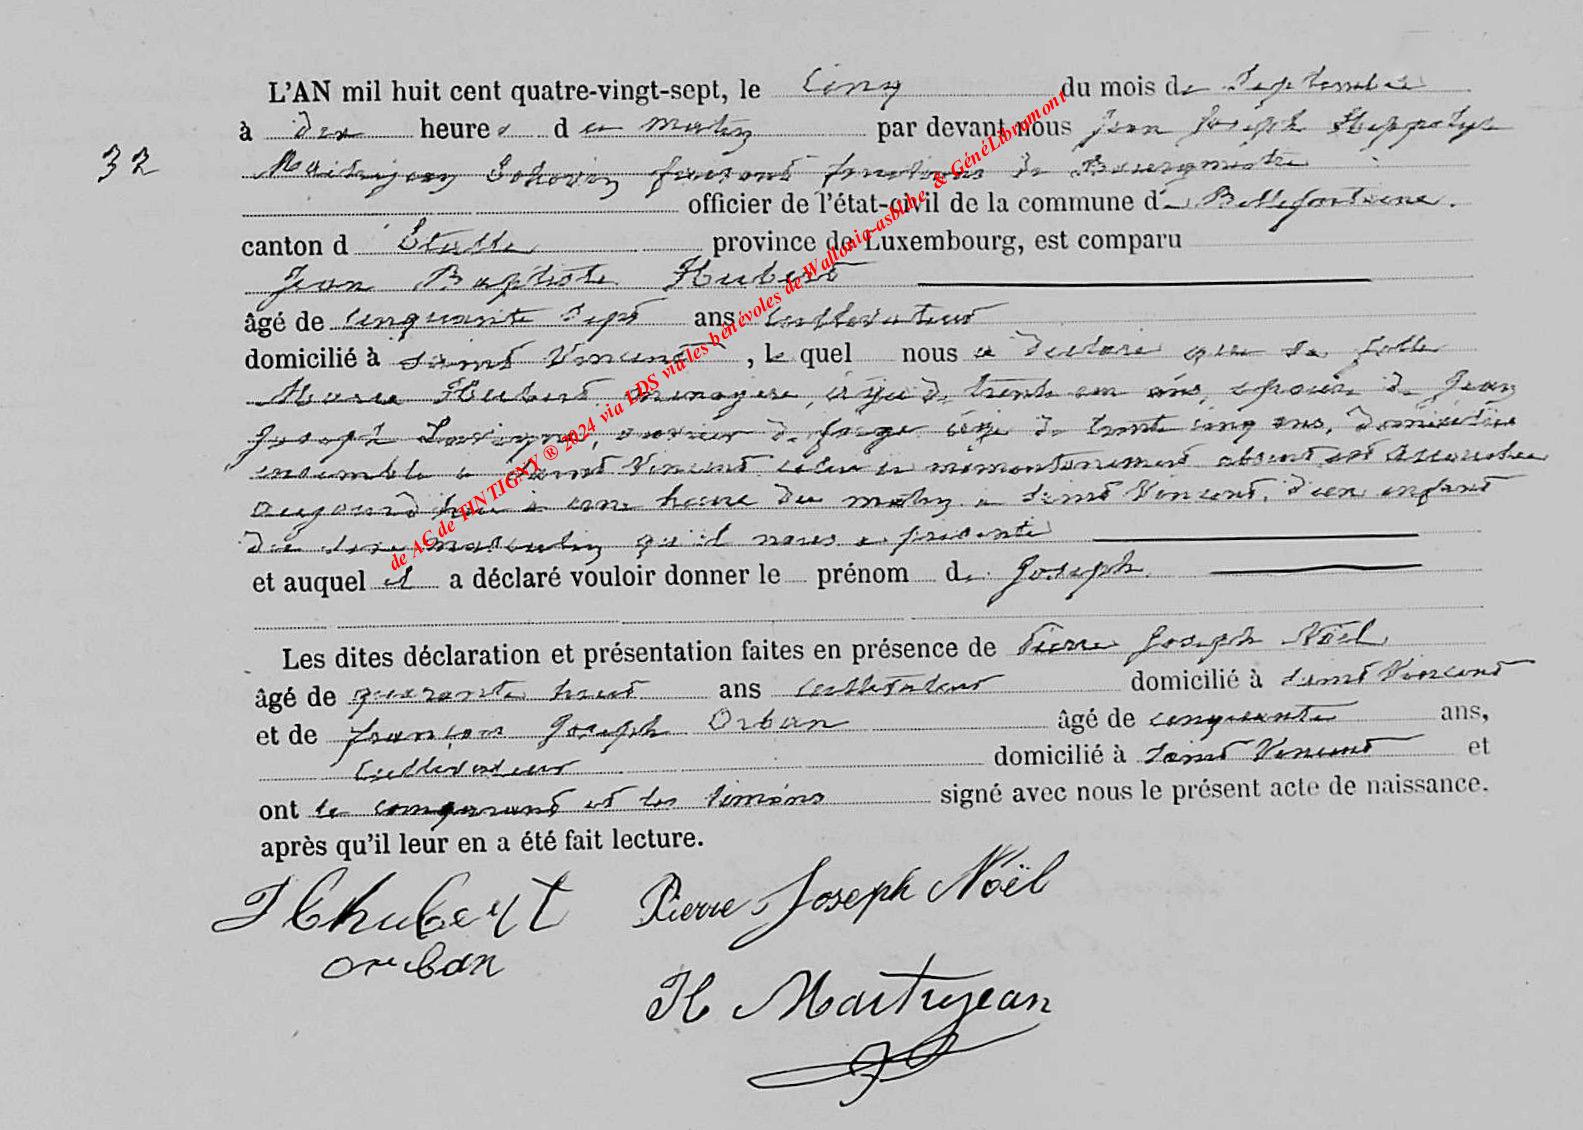 L'AN mil huit cent quatre-vingt-sept, le cinq du mois de Septembre
à dix heures du matin par devant nous Jean Joseph Hippolyte
32
Maitrejean Echevin faisant fonctions de Bourgmestre
officier de l'état-civil de la commune de Bellefontaine.
canton d'Etalle province de Luxembourg, est comparu
Jean Baptiste Hubert
âgé de cinquante sept ans cultivateur
domicilié à Saint Vincent, le quel nous a déclaré que sa fille
Marie Hubert ménagère, âgée de trente un ans, épouse de Jean
Joseph ouvrier de forge âgé de trente cinq ans, domiciliés
ensemble à Saint Vincent celui ci momentanement absent est accouchée
aujourd'hui à une heure du matin à Saint Vincent, d'un enfant
du sexe masculin qu'il nous a présenté
et auquel il a déclaré vouloir donner le prénom de Joseph.
Les dites déclaration et présentation faites en présence de Pierre Joseph Noël
âgé de quarante huit ans cultivateur domicilié à Saint Vincent
et de François Joseph Orban âgé de cinquante ans,
Cultivateur domicilié à Saint Vincent et
ont le comparant et les témoins signé avec nous le présent acte de naissance.
après qu'il leur en a été fait lecture.
JBhubert Pierre Joseph Noël
orban
H Maitrejean
de AC de TINTIGNY ® 2024 via LDS via les bénévoles de Wallonia-asbl.be & GénéLibramont